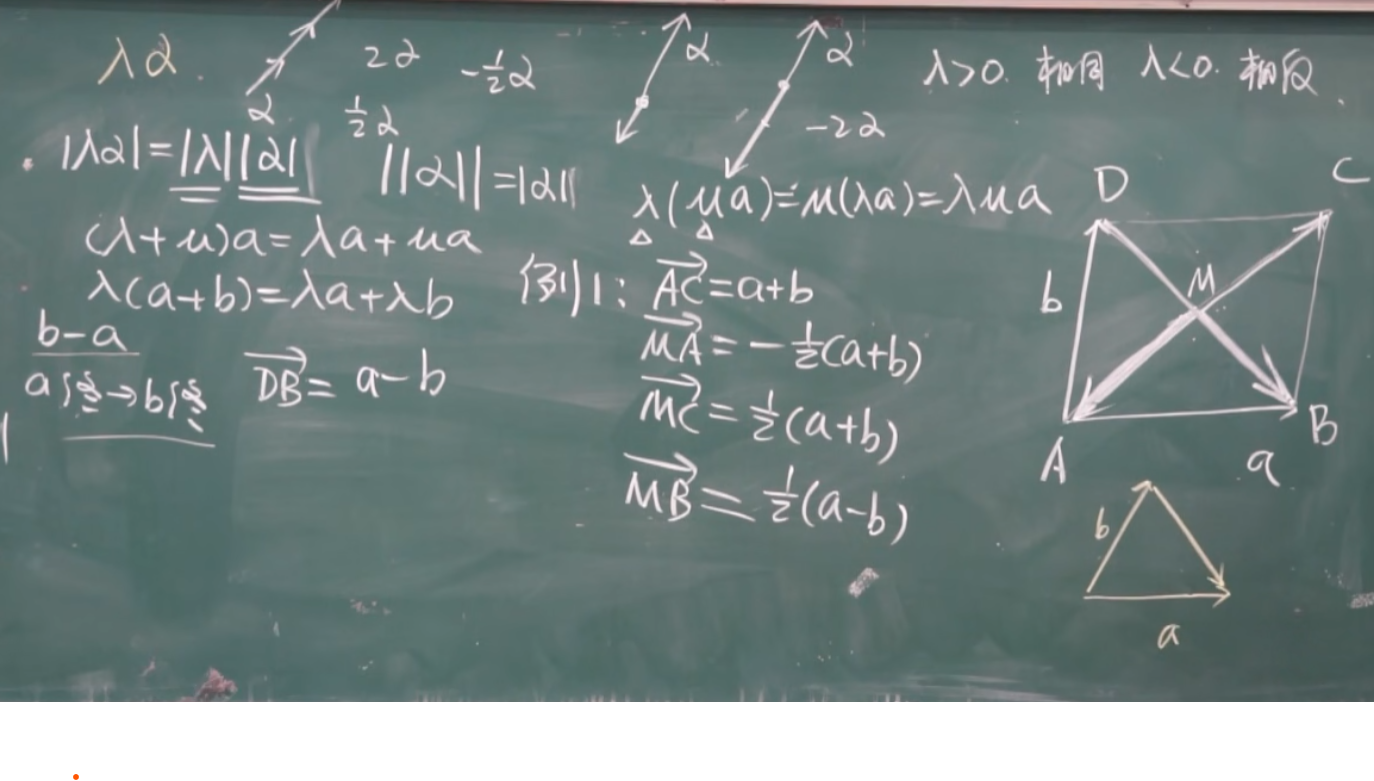 λα. α 2α -½α ½α
α. α -2α
λ>0. 相同 λ<0. 相反.
|λα|=|λ||α| ||α||=|α|
λ(μa)=μ(λa)=λμa
(λ+μ)a=λa+μa
λ(a+b)=λa+λb
b-a
a终→b终
DB= a-b
例1: AC=a+b
MA=-½(a+b)
MC=½(a+b)
MB=½(a-b)
D C
M
b
A B
a
b
a